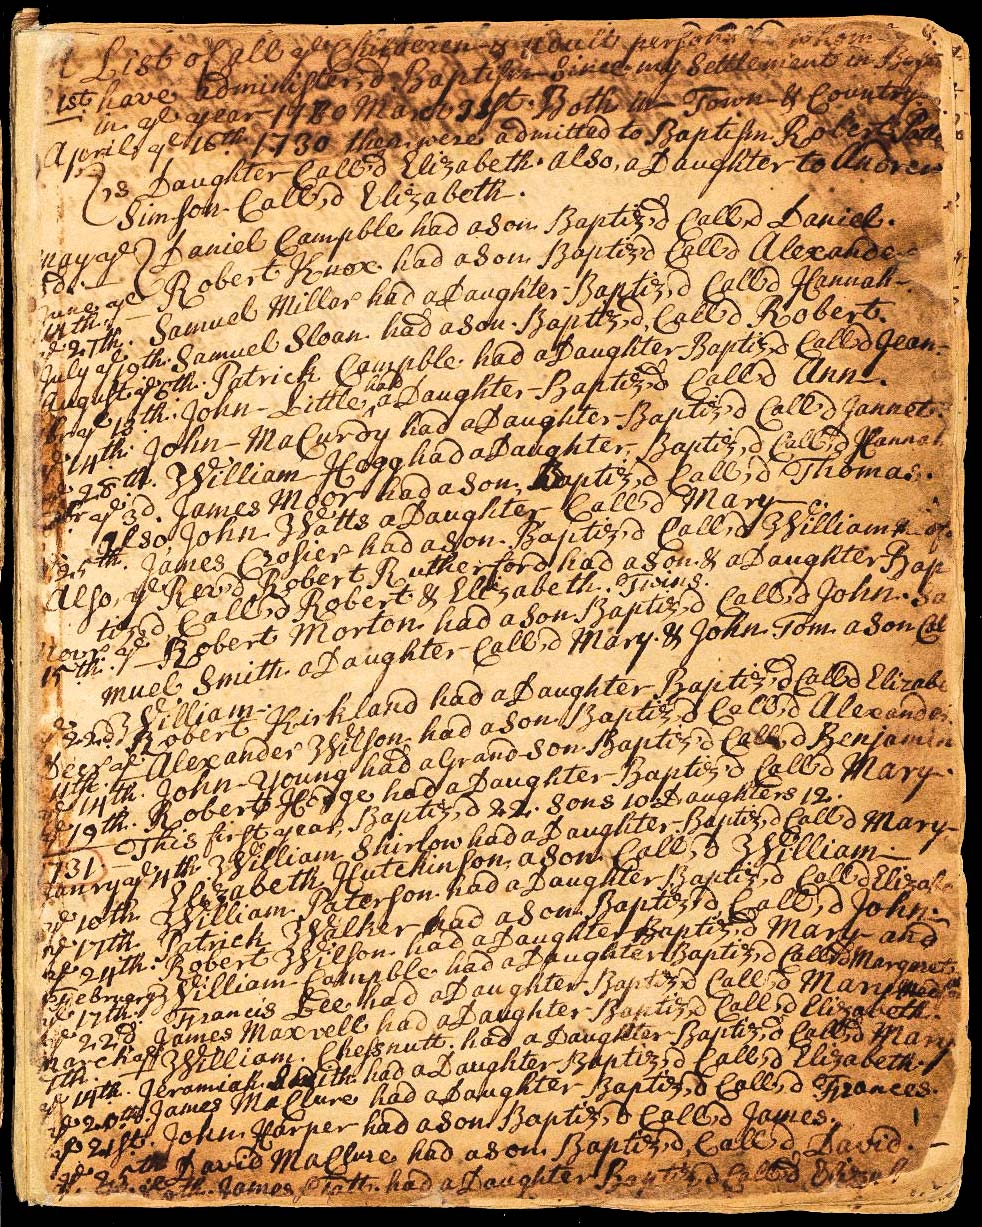 A List of all ye Children & adult persons whom I
have administer'd Baptism since my Settlement in
1st in ye year 1730 March 31st. Both in Town & Country.
April ye 16th 1730 then were admitted to Baptism Robert
's Daughter Call'd Elizabeth. also, a Daughter to Andrew
Simson Call'd Elizabeth.
may ye Daniel Campble had a son Baptiz'd Call'd Daniel.
3d. Robert Knox had a Son Baptiz'd Call'd Alexander
June ye
14th. Samuel Millar had a Daughter Baptiz'd Call'd Hannah
ye 27th. Samuel Sloan had a Son Baptiz'd, Call'd Robert.
July ye 19th. Patrick Campble had a Daughter Baptiz'd Call'd Jean.
August ye John Little had a Daughter Baptiz'd Call'd Ann.
ye 13th. John MaCurdy had a Daughter Baptiz'd Call'd Jannet.
ye 14th. William Hogg had a Daughter Baptiz'd Call'd Hannah
ye 28th. James Moor had a Son Baptiz'd Call'd Thomas.
ye 3d. Also, John Watts a Daughter Call'd Mary.
25th. James Crosier had a Son Baptiz'd Call'd William & of
Also, ye Rev'd Robert Rutherford had a son & a Daughter Bap
tiz'd Call'd Robert & Elizabeth. Twins.
Novr ye Robert Morton had a Son Baptiz'd Call'd John. Sa
15th. muel Smith a Daughter Call'd Mary. & John Tom a Son Cal
William.
ye 22d Robert Kirkland had a Daughter Baptiz'd Call'd Elizabe
Decr ye Alexander Wilson had a Son Baptiz'd Call'd Alexander
4th.
ye 14th. John Young had a Grand-son Baptiz'd Call'd Benjamin
ye 19th. Robert Hodge had a Daughter Baptiz'd Call'd Mary.
This first year, Baptiz'd 22. Sons 10 Daughters 12.
1731
Janry ye 4th. William Shirlow had a Daughter Baptiz'd Call'd Mary
Elizabeth Hutchinson a Son Call'd William
ye 10th. William Paterson had a Daughter Baptiz'd Call'd Elizab
ye 17th. Patrick Walker had a Son Baptiz'd Call'd John.
ye 24th. Robert Wilson had a Daughter Baptiz'd Mary and
February William Campble had a Daughter Baptiz'd Call'd Margaret
ye 17th. Francis Lee had a Daughter Baptiz'd Call'd Mary
ye 22d. James Maxwell had a Daughter Baptiz'd Call'd Elizabeth.
March ye William Chesnutt had a Daughter Baptiz'd Call'd Mary
7th.
ye 14th. Jeramiah Smith had a Daughter Baptiz'd Call'd Elizabeth.
ye 20th. James MaClure had a Daughter Baptiz'd Call'd Frances.
ye 21st. John Harper had a Son Baptiz'd Call'd James.
ye David MaClure had a Son Baptiz'd, Call'd David.
James had a Daughter Baptiz'd Call'd